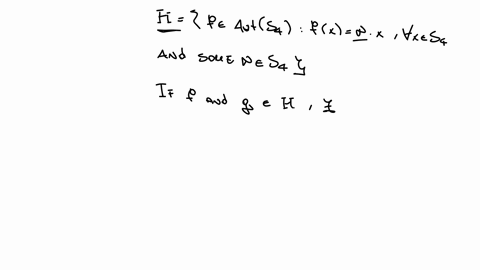 H = { f ∈ Aut(S₄) : f(x) = n · x , ∀x∈S₄
AND SOME n ∈ S₄ }
IF f and g ∈ H ,